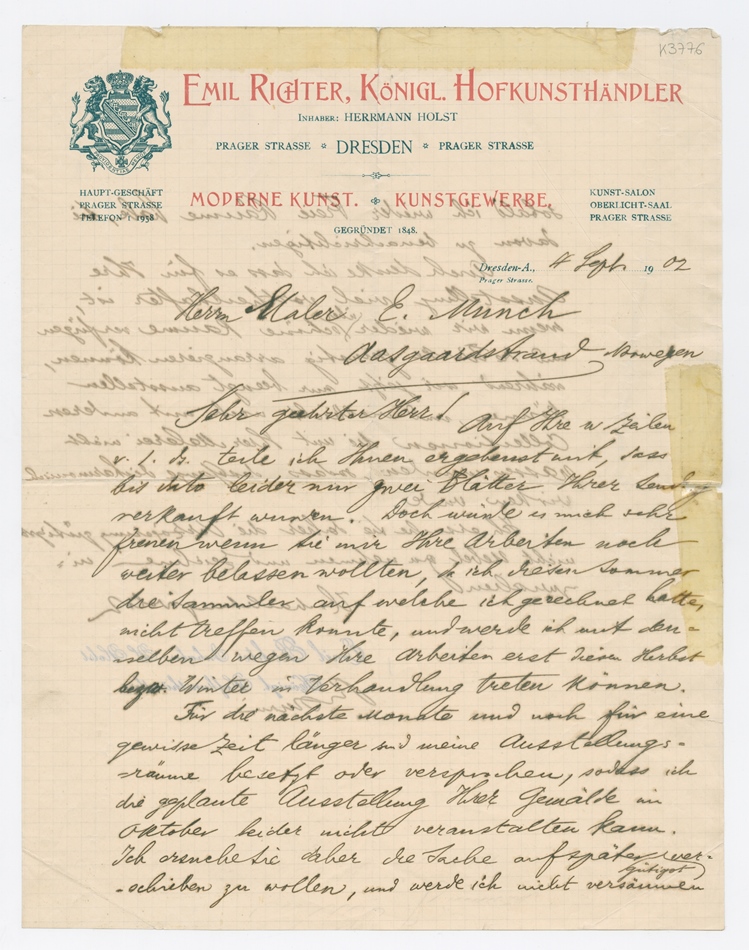 K3776
EMIL RICHTER, KÖNIGL. HOFKUNSTHÄNDLER
INHABER: HERRMANN HOLST
PRAGER STRASSE * DRESDEN * PRAGER STRASSE
HAUPT-GESCHÄFT
PRAGER STRASSE
TELEFON I 1938
MODERNE KUNST. KUNSTGEWERBE.
KUNST-SALON
OBERLICHT-SAAL
PRAGER STRASSE
GEGRÜNDET 1848.
Dresden-A., 4 Sept. 1902
Prager Strasse.
Herrn Maler E. Munch
Aasgaardstrand Norwegen
Sehr geehrter Herr!
Auf Ihre w Zeilen
v. 1. ds. teile ich Ihnen ergebenst mit, dass
bis dato leider nur zwei Blätter Ihrer Sendg
verkauft wurden. Doch würde es mich sehr
freuen wenn Sie mir Ihre Arbeiten noch
weiter belassen wollten, da ich diesen Sommer
die Sammler auf welche ich gerechnet hatte,
nicht treffen konnte, und werde ich mit den=
=selben wegen Ihre Arbeiten erst diesen Herbst
bezw. Winter in Verhandlung treten können.
Für die nächste Monate und noch für eine
gewisse Zeit länger sind meine Ausstellungs=
=räume besetzt oder versprochen, sodass ich
die geplante Ausstellung Ihrer Gemälde im
Oktober leider nicht veranstalten kann.
Ich ersuche Sie daher die Sache auf später ver=
gütigst
=schieben zu wollen, und werde ich nicht versäumen